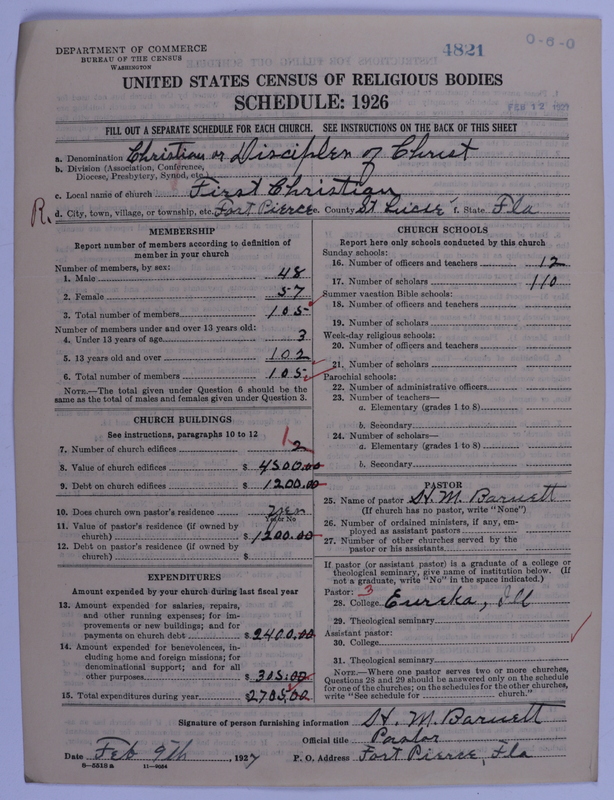 DEPARTMENT OF COMMERCE
BUREAU OF THE CENSUS
WASHINGTON
4821
0-6-0
UNITED STATES CENSUS OF RELIGIOUS BODIES
SCHEDULE: 1926
FEB 12 1927
FILL OUT A SEPARATE SCHEDULE FOR EACH CHURCH. SEE INSTRUCTIONS ON THE BACK OF THIS SHEET
a. Denomination Christian or Disciples of Christ
b. Division (Association, Conference, Diocese, Presbytery, Synod, etc.)
c. Local name of church First Christian
R. d. City, town, village, or township, etc. Fort Pierce e. County St Lucie f. State Fla
MEMBERSHIP
Report number of members according to definition of member in your church
Number of members, by sex:
1. Male 48
2. Female 57
3. Total number of members 105
Number of members under and over 13 years old:
4. Under 13 years of age 3
5. 13 years old and over 102
6. Total number of members 105
NOTE.—The total given under Question 6 should be the same as the total of males and females given under Question 3.
CHURCH BUILDINGS
See instructions, paragraphs 10 to 12
7. Number of church edifices 1 2
8. Value of church edifices $ 4500.00
9. Debt on church edifices $ 1200.00
10. Does church own pastor's residence yes
Yes or No
11. Value of pastor's residence (if owned by church) $ 1200.00
12. Debt on pastor's residence (if owned by church) $
EXPENDITURES
Amount expended by your church during last fiscal year
13. Amount expended for salaries, repairs, and other running expenses; for improvements or new buildings; and for payments on church debt $ 2400.00
14. Amount expended for benevolences, including home and foreign missions; for denominational support; and for all other purposes $ 305.00
15. Total expenditures during year $ 2705.00
CHURCH SCHOOLS
Report here only schools conducted by this church
Sunday schools:
16. Number of officers and teachers 12
17. Number of scholars 110
Summer vacation Bible schools:
18. Number of officers and teachers
19. Number of scholars
Week-day religious schools:
20. Number of officers and teachers
21. Number of scholars
Parochial schools:
22. Number of administrative officers
23. Number of teachers—
a. Elementary (grades 1 to 8)
b. Secondary
24. Number of scholars—
a. Elementary (grades 1 to 8)
b. Secondary
PASTOR
25. Name of pastor H. M. Barnett
(If church has no pastor, write "None")
26. Number of ordained ministers, if any, employed as assistant pastors
27. Number of other churches served by the pastor or his assistants
If pastor (or assistant pastor) is a graduate of a college or theological seminary, give name of institution below. (If not a graduate, write "No" in the space indicated.)
Pastor: 3
28. College Eureka, Ill
29. Theological seminary
Assistant pastor:
30. College
31. Theological seminary
NOTE.—Where one pastor serves two or more churches, Questions 28 and 29 should be answered only on the schedule for one of the churches; on the schedules for the other churches, write "See schedule for church."
Signature of person furnishing information H. M. Barnett
Official title Pastor
Date Feb 9th, 1927 P. O. Address Fort Pierce, Fla
8—5518a 11—9064